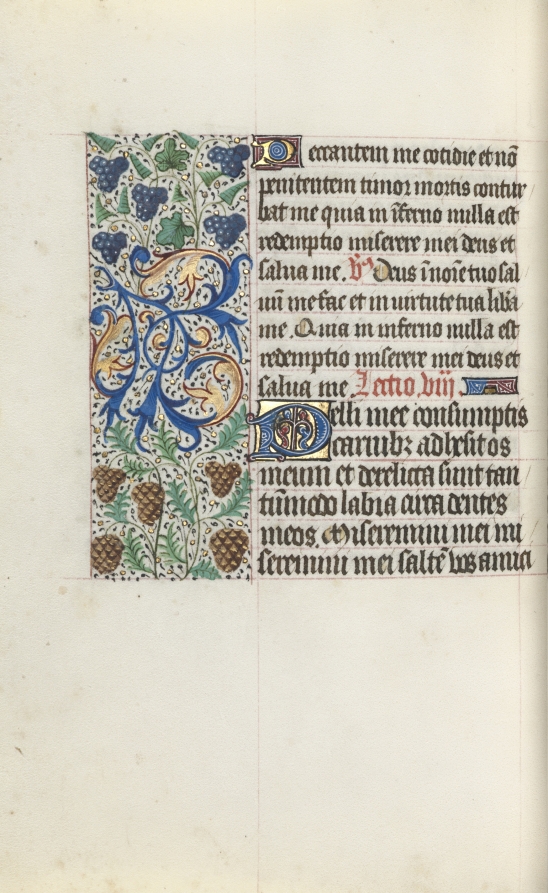 Peccantem me cotidie et nō
penitentem timor mortis contur
bat me quia in īferno nulla est
redemptio miserere mei deus et
salua me. V̄ Deus ī noīe tuo sal
uū me fac et in uirtute tua liba
me. Quia in inferno nulla est
redemptio miserere mei deus et
salua me. Lectio. viij.
Pelli mee consumptis
carnibꝫ adhesit os
meum et derelicta sunt tan
tūmodo labia circa dentes
meos. Miseremini mei mi
seremini mei saltē vos amici